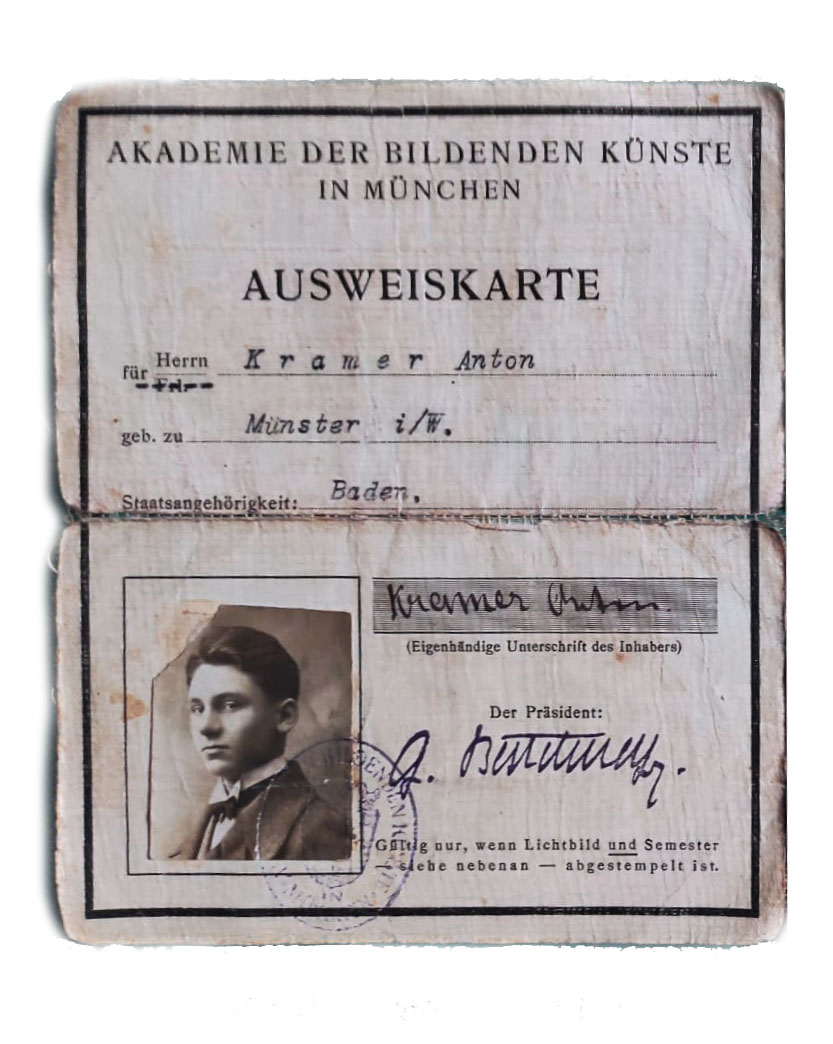 AKADEMIE DER BILDENDEN KÜNSTE
IN MÜNCHEN
AUSWEISKARTE
für Herrn Kramer Anton
geb. zu Münster i/W.
Staatsangehörigkeit: Baden.
Kramer Anton.
(Eigenhändige Unterschrift des Inhabers)
Der Präsident:
G. Bestelmeyer.
Gültig nur, wenn Lichtbild und Semester
— siehe nebenan — abgestempelt ist.
BILDENDEN